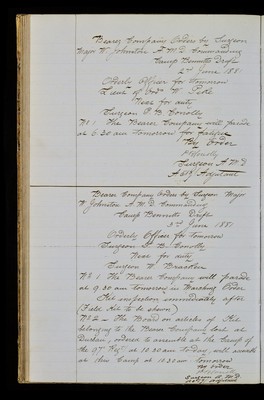 Bearer Company Orders by Surgeon
Major W. Johnston A.M.D. Commanding
Camp Bennetts Drift
2nd June 1881
Orderly Officer for tomorrow
Lieut of Ordr W.
Next for duty
Surgeon P. B. Conolly
No 1 The Bearer Company will parade
at 6.30 am tomorrow for fatigue
By Order
P B Conolly
Surgeon A.M.D
Adjutant
Bearer Company Orders by Surgeon Major
W. Johnston A.M.D. Commanding
Camp Bennetts Drift
3rd June 1881
Orderly Officer for tomorrow
Surgeon P. B. Conolly
Next for duty
Surgeon W.
No 1 The Bearer Company will parade
at 9.30 am tomorrow in Marching Order.
Kit inspection immediately after
(Field Kit to be shewn)
No 2 The Board on articles of Kit
belonging to the Bearer Company lost at
Durban, ordered to assemble at the Camp of
the 97th Regt at 10.30 am today, will assemble
at this Camp at 10.30 am tomorrow
By order
Surgeon A.M.D
Adjutant